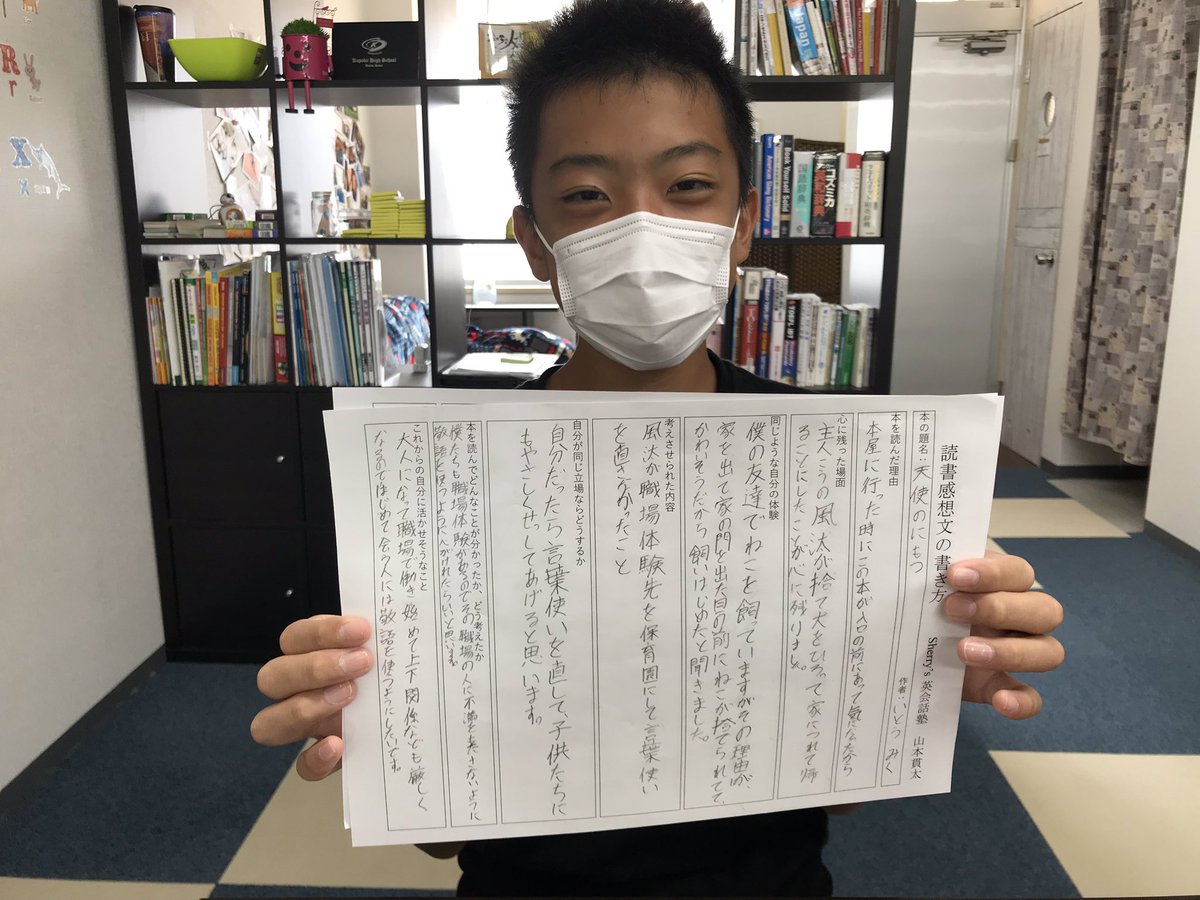 読書感想文の書き方 Sherry's 英会話塾 山本貫太
本の題名：天使のにもつ 作者：いとう みく
本を読んだ理由
本屋に行った時にこの本が入口の前にあって気になったから
心に残った場面
主人こうの風汰が捨て犬をひろって家につれて帰
ることにしたことが心に残りました。
同じような自分の体験
僕の友達でねこを飼っていますがその理由が、
家を出て家の門を出た目の前にねこが捨てられてて、
かわいそうだから飼いはじめたと聞きました。
考えさせられた内容
風汰が職場体験先を保育園にして言葉使い
を直さなかったこと
自分が同じ立場ならどうするか
自分だったら言葉使いを直して、子供たちに
もやさしくせっしてあげると思います。
本を読んでどんなことが分かったか、どう考えたか
僕たちも職場体験があるのでその職場の人に不満を来さないように
敬語を使うように心がけれたらいいと思います。
これからの自分に活かせそうなこと
大人になって職場で働き始めて上下関係なども厳しく
なるのではじめて会う人には敬語を使うようにしたいです。
R
r
X
x
K
Kapolei High School
Japan
American Slang Dictionary
Book Yourself Solid
国語辞典
コズミカ
英和辞典
TOEFL iBT